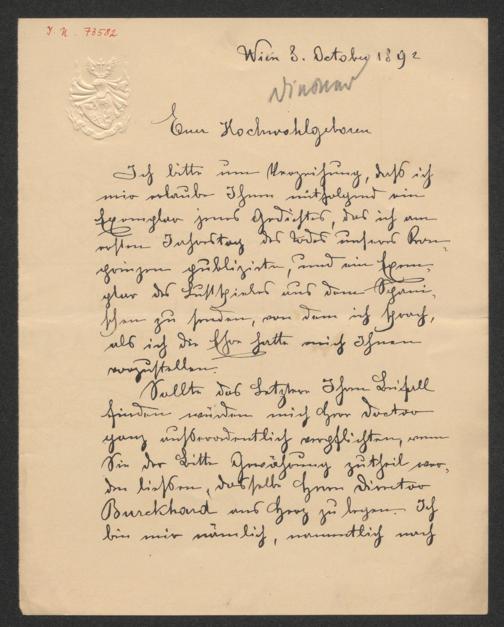 I. N. 73582
Wien 8. October 1892
Euer Hochwohlgeboren
Ich bitte um Verzeihung, daß ich
mir erlaube Ihnen mitfolgend ein
Exemplar jenes Gedichtes, das ich am
ersten Jahrestag des Todes unseres Kron-
prinzen publizirte, und ein Exem-
plar des Lustspieles aus dem Spani-
schen zu senden, von dem ich sprach,
als ich die Ehre hatte mich Ihnen
vorzustellen.
Sollte das Letztere Ihren Beifall
finden würden mich Herr Doctor
ganz außerordentlich verpflichten, wenn
Sie der Bitte Gewährung zutheil wer-
den ließen, dasselbe Herrn Director
Burckhard ans Herz zu legen. Ich
bin mir nämlich, namentlich nach